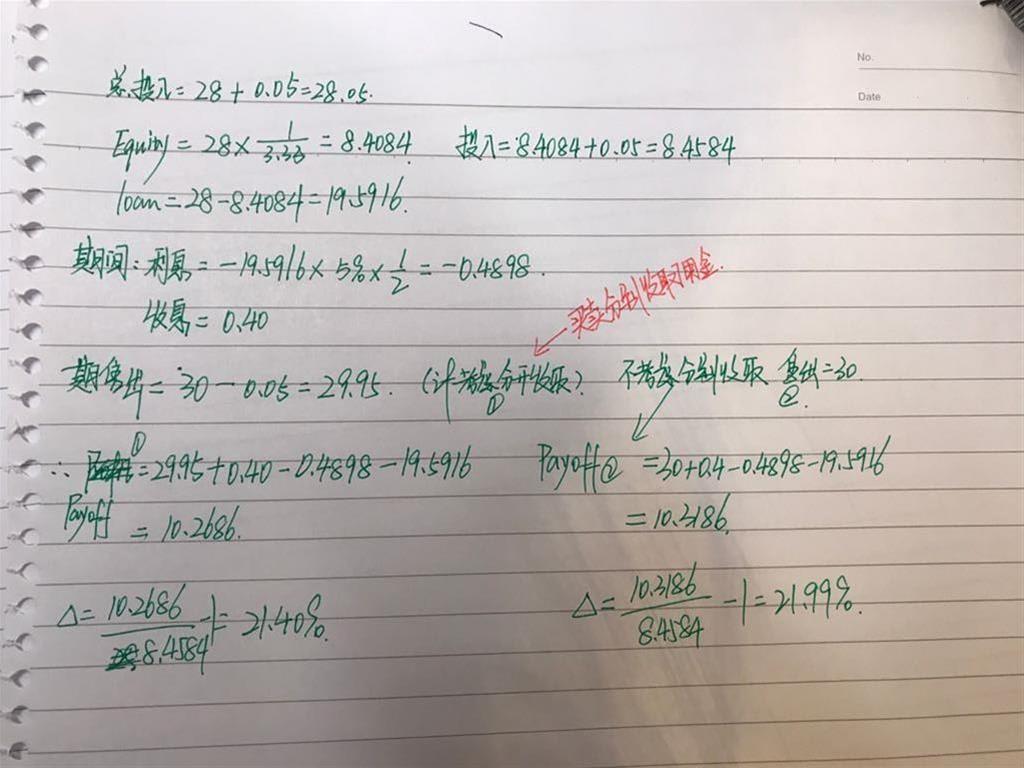 No.
Date
总投入=28+0.05=28.05.
Equity=28×1/3.33=8.4084 投入=8.4084+0.05=8.4584
loan=28-8.4084=19.5916.
期间:利息=-19.5916×5%×1/2=-0.4898.
收息=0.40
买卖分别收取佣金.
期售出=30-0.05=29.95. (计考虑分开收取) ① 不考虑分别收取 售出=30. ②
∴ Payoff ①=29.95+0.40-0.4898-19.5916 Payoff②=30+0.4-0.4898-19.5916
=10.2686. =10.3186.
Δ=10.2686/8.4584-1=21.40%. Δ=10.3186/8.4584-1=21.99%.